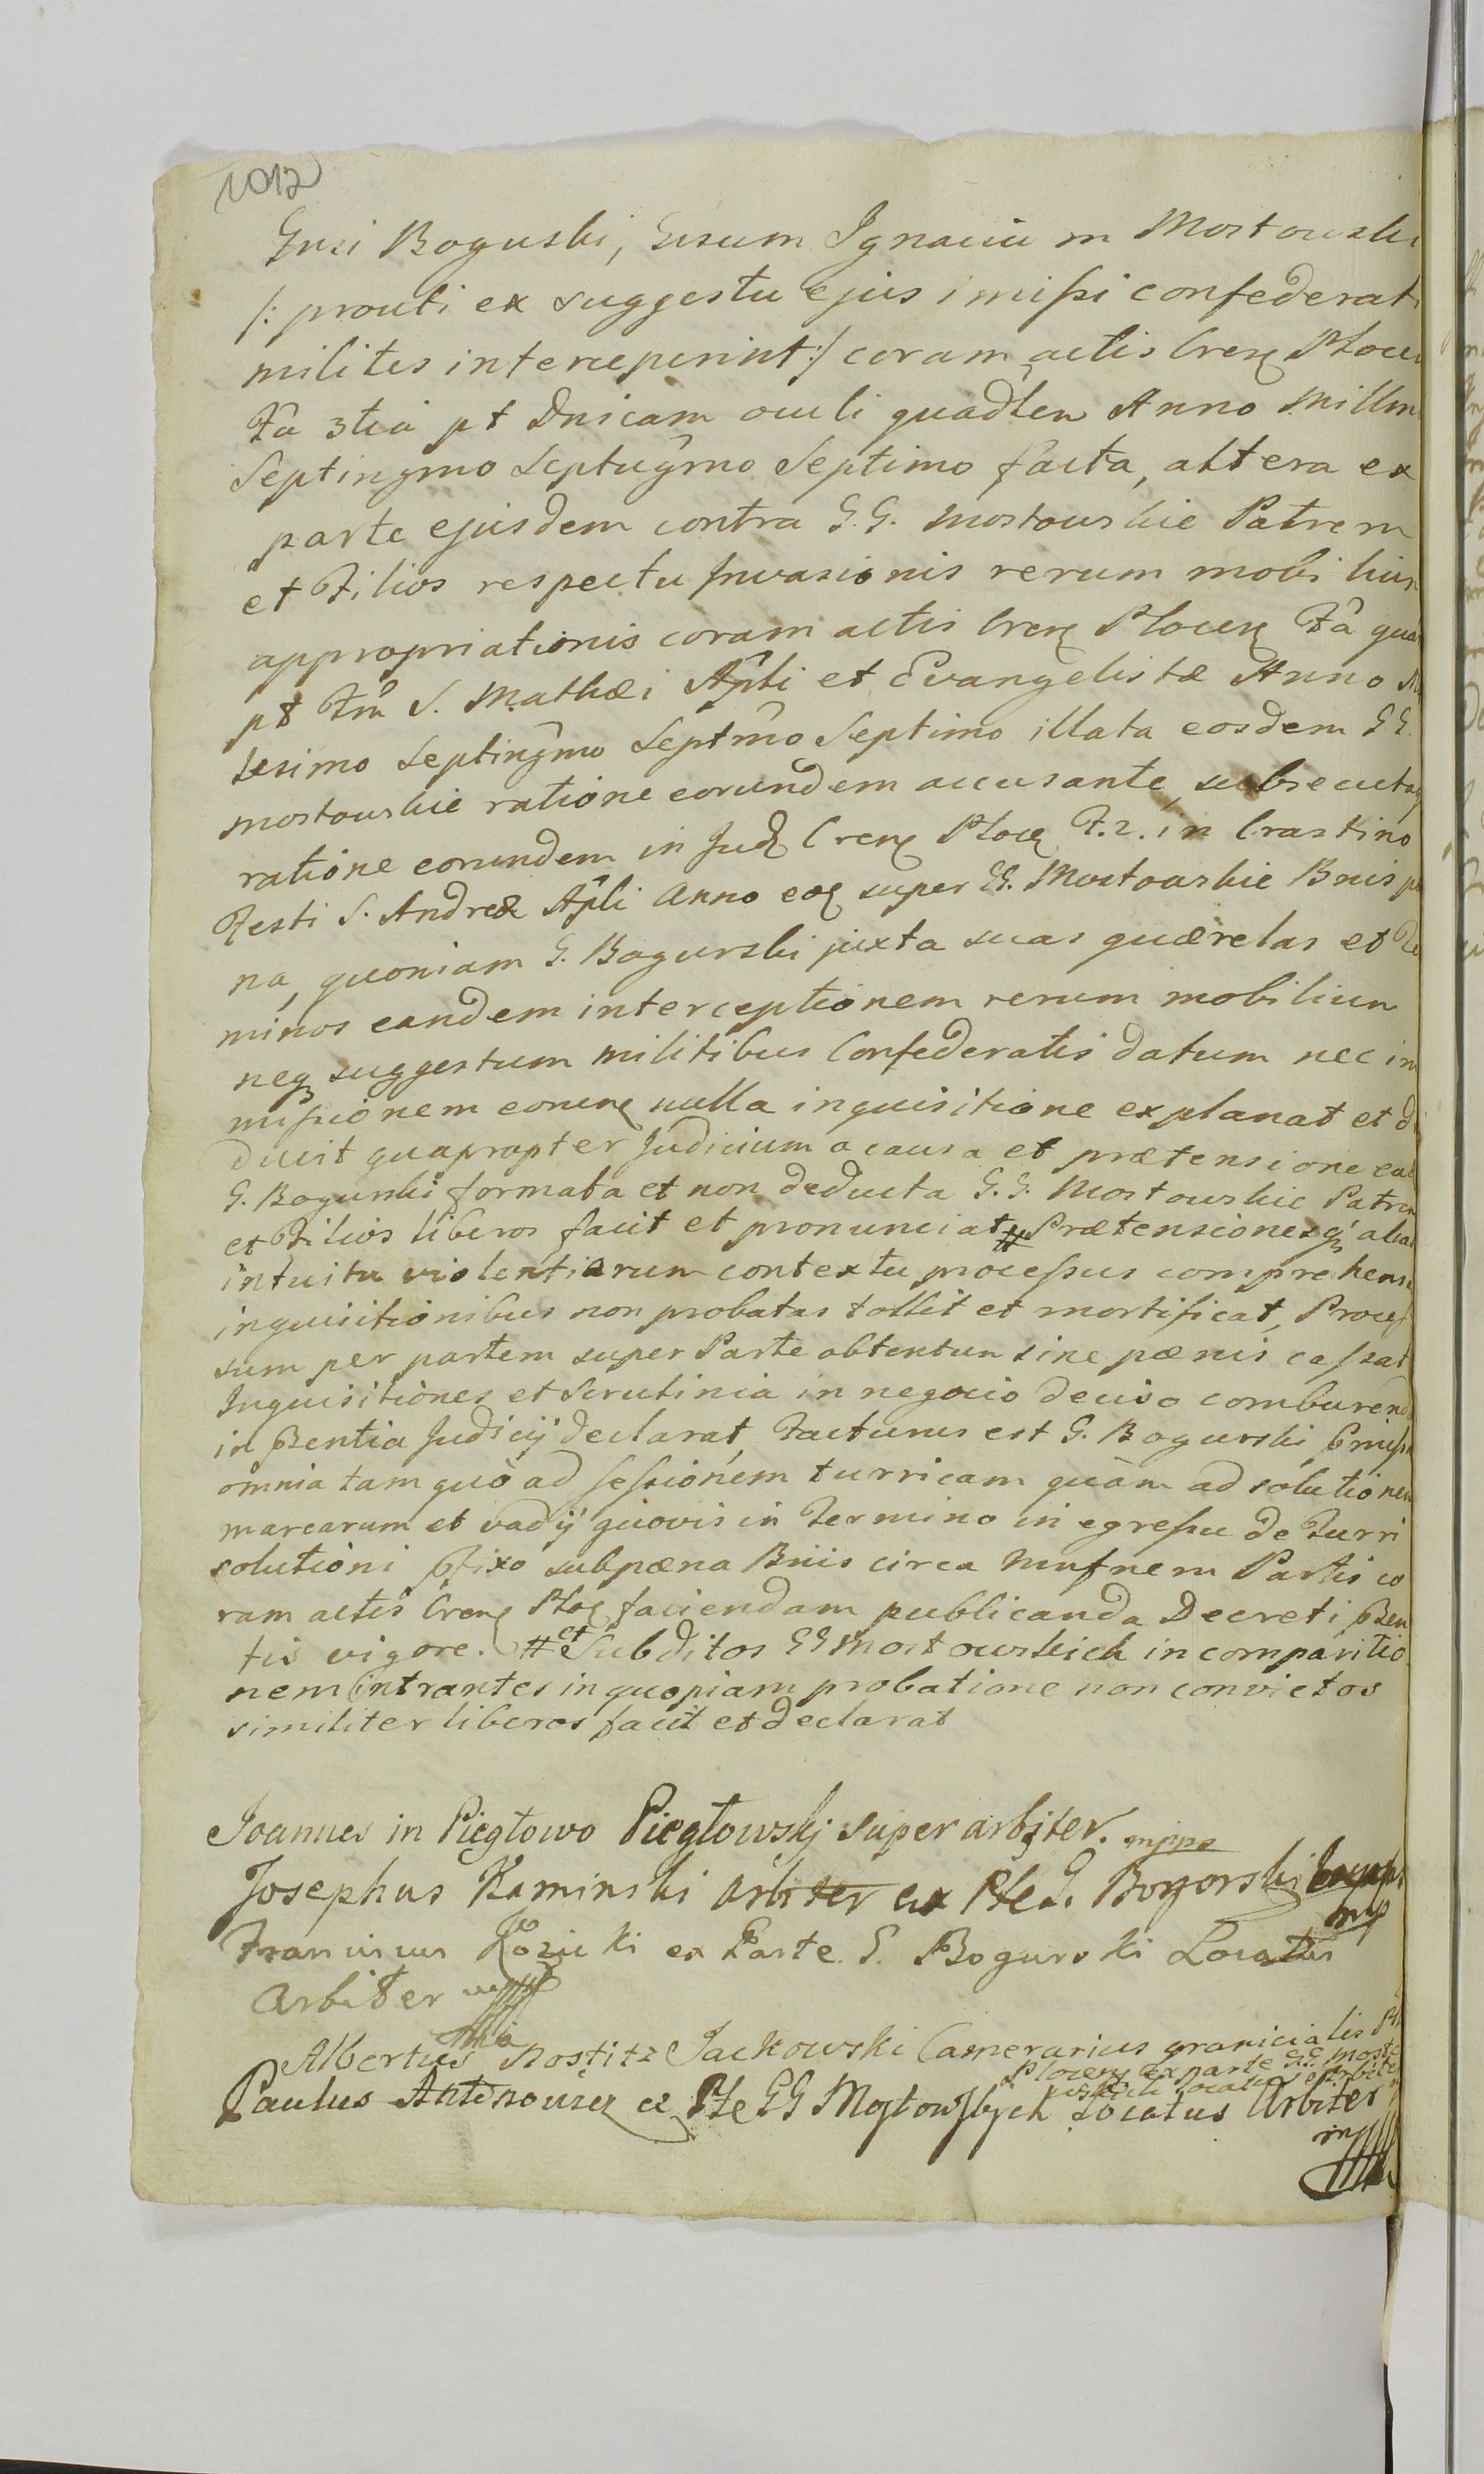 1012
Gnsi Boguski, Gnsum Ignaciu m Mostowski
/: prouti ex suggestu ejus imissi confederati
milites interceperint :/ coram actis Cren Plocen
Fa 3tia pt Dnicam oculi quadlen Anno Millm
Septingmo Septugmo Septimo facta, altera ex
parte ejusdem contra G.G. Mostowskie Patrem
et Filios respectu Invasionis rerum mobilium
appropriationis coram actis Cren Plocen Fa qua
pt Fm S. Mathæi Apli et Evangelistæ Anno Mi
lesimo Septingmo Septmo Septimo illata eosdem GG.
Mostowskie ratione eorundem accusante, subsecutaq
ratione eorundem in Jud Cren Ploce F. 2. in Crastino
Festi S. Andreæ Apli Anno eoq super GG. Mostowskie Bnis pœ
na, quoniam G. Bogurski juxta suas quærelas et Te
minos eandem interceptionem rerum mobilium
neq suggestum militibus Confederatis datum nec im
missionem eorunq nulla inquisitione explanat et de
ducit quapropter Judicium a causa et prætensione ead
G. Bogurski formata et non deducta G.G. Mostowskie Patrem
et Filios liberos facit et pronunciat # Prætensionesq alias
intuitu violentiarum contextu processus comprehensas
inquisitionibus non probatas tollit et mortificat, Proces
sum per partem super Parte obtentum sine pænis cassat
Inquisitiones et Scrutinia in negocio deciso comburenda
in psentia Judicij declarat, Facturus est G. Bogurski pmissa
omnia tam quò ad sessionem turricam quàm ad solutionem
marcarum et vadij quovis in Termino in egressu de Turri
solutioni pfixo sub pæna Bnis circa mnfnem Partis co
ram actis Cren Ploc faciendam publicanda Decreti psen
tis vigore. # et Subditos GG Mostowskich in comparitio
nem intrantes in quopiam probatione non convictos
similiter liberos facit et declarat
Joannes in Piegłowo Piegłowskj super arbiter. mppa
Josephus Kaminski Arbiter ex Pte G. Bogorski
mp
Franciscus Kozicki ex Parte G. Bogurski Locatus
Arbiter mp
Albertus Nostitz Jackowski Camerarius granicialis
Plocen ex parte GG Mosto
wskich locatus Arbiter
Paulus Antonowicz ex Pte GG Mostowskych Locatus Arbiter
mp